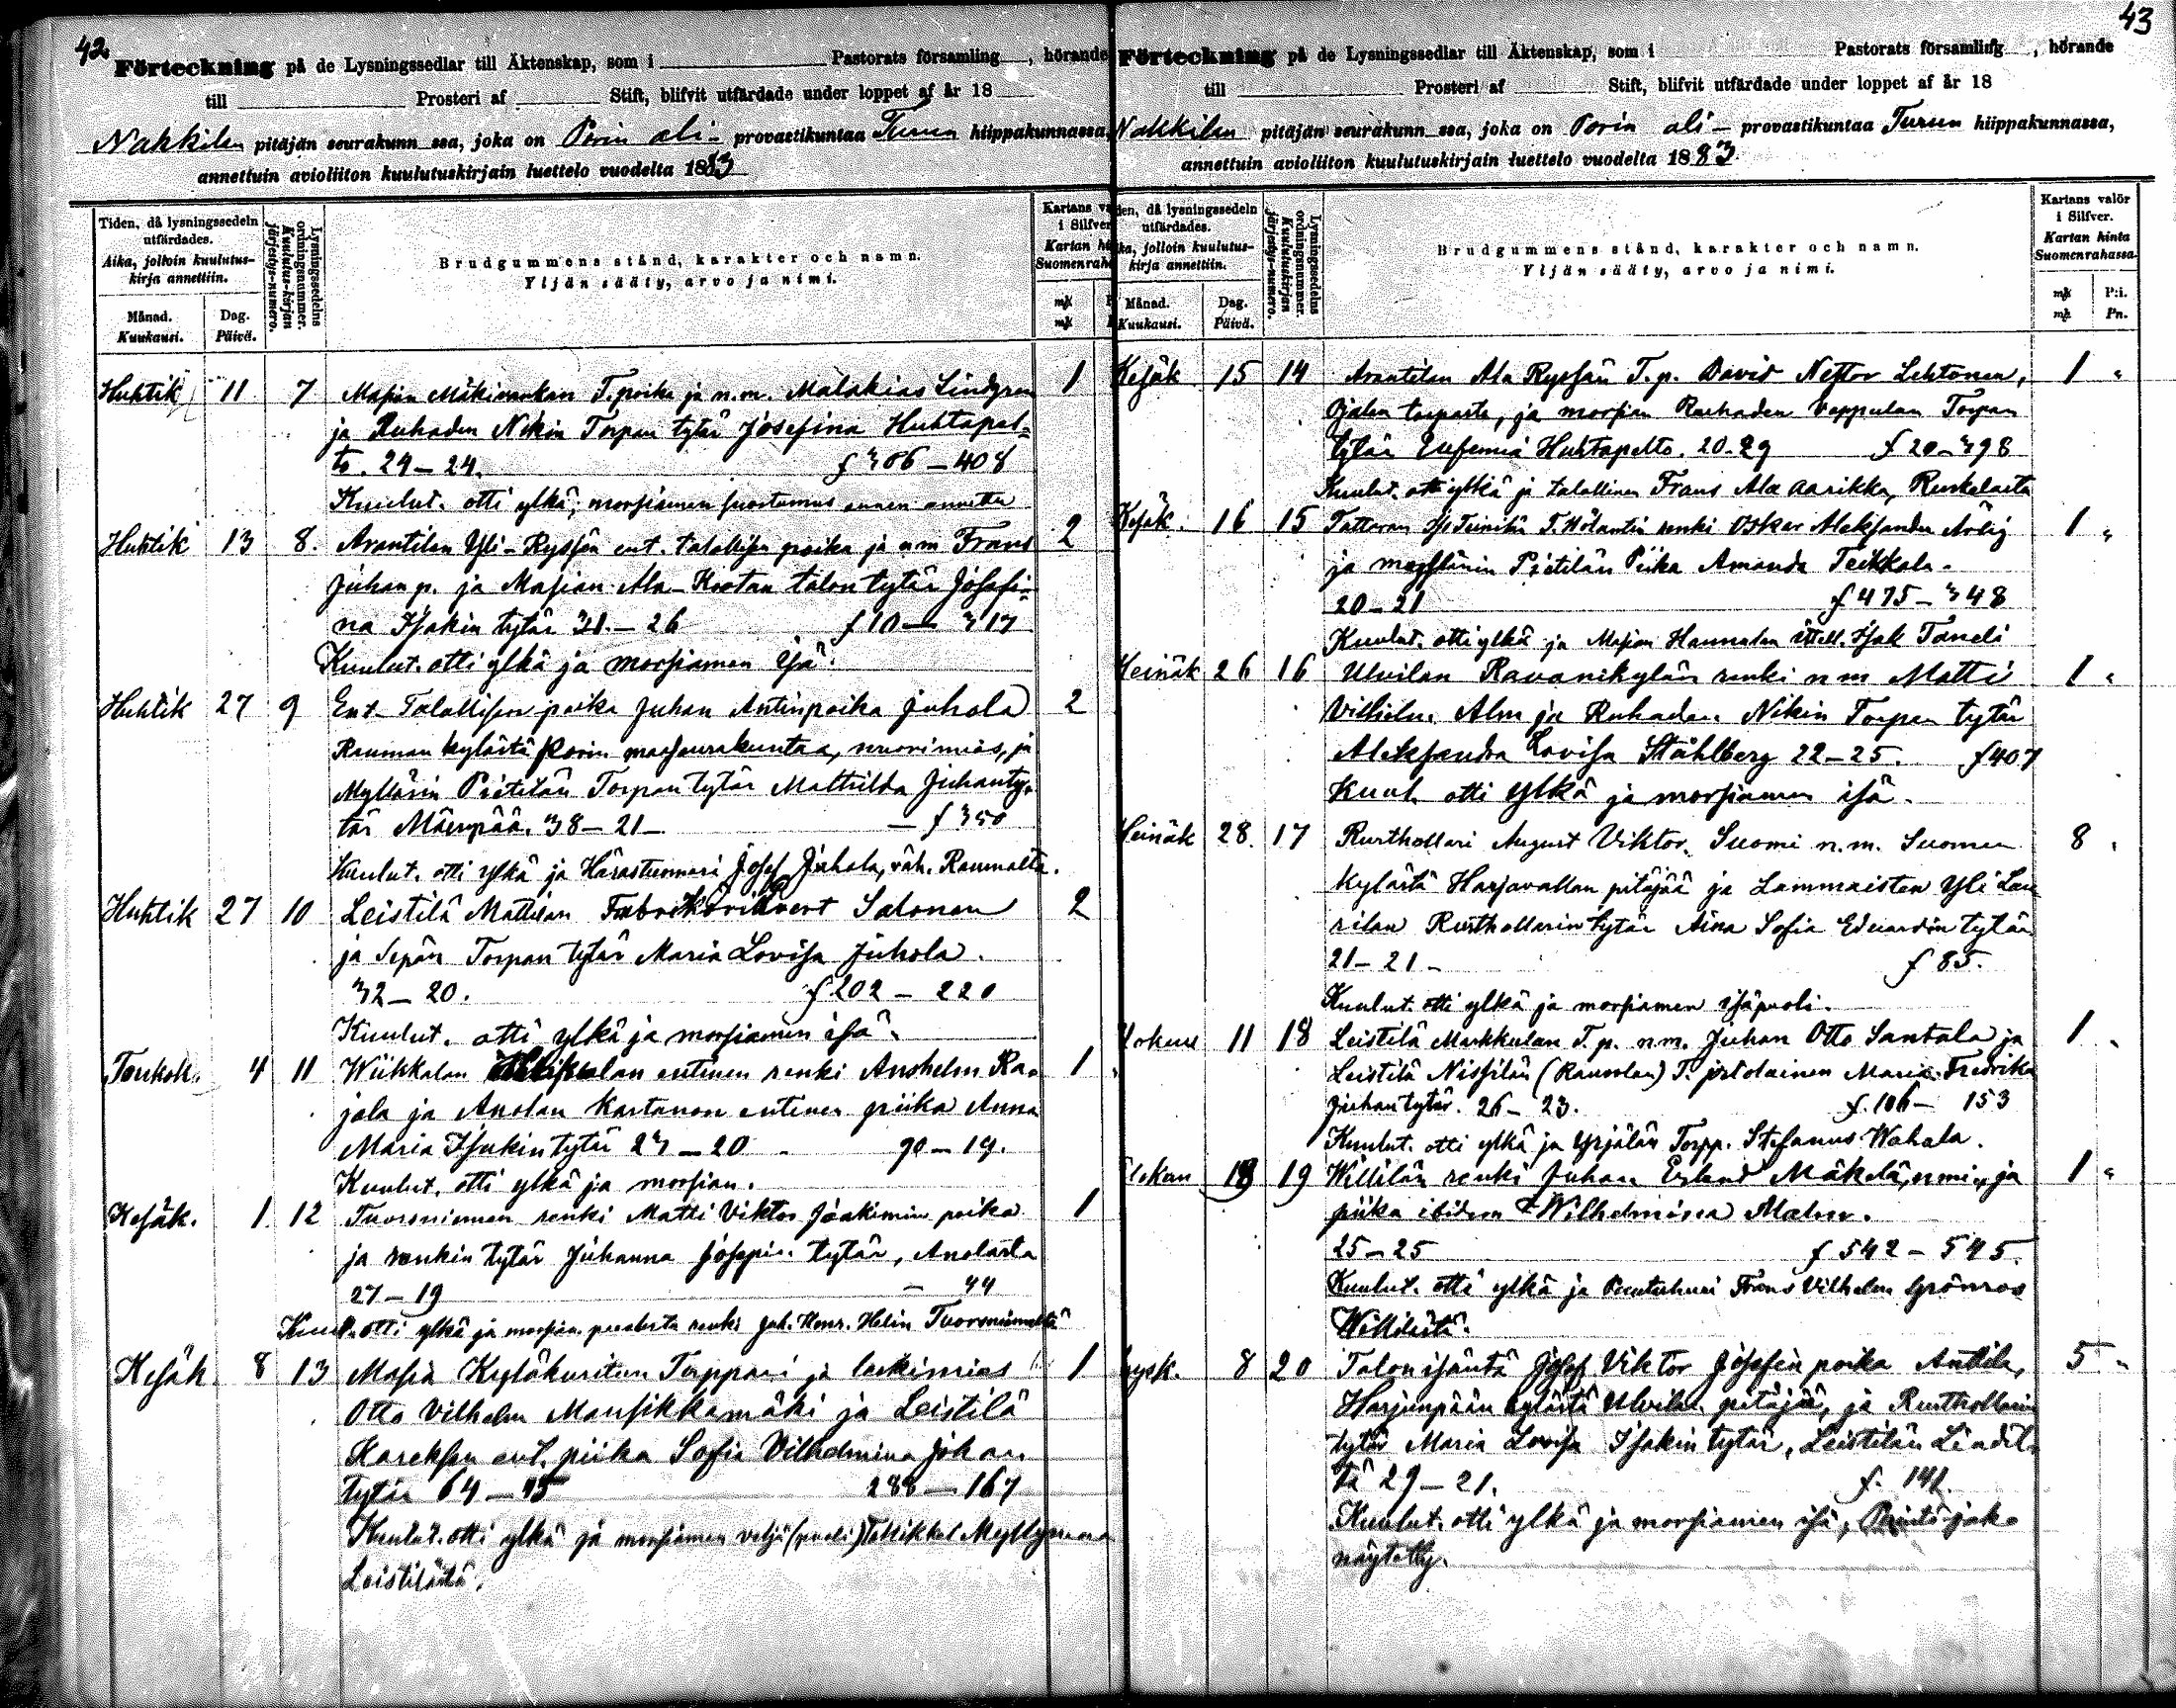 42
Förteckning på de Lysningssedlar till Äktenskap, som i Pastorats församling , hörande
till Prosteri af Stift, blifvit utfärdade under loppet af år 18
Nakkilan pitäjän seurakunn ssa, joka on Porin ali- provastikuntaa Turun hiippakunnassa,
annettuin avioliiton kuulutuskirjain luettelo vuodelta 1883
Tiden, då lysningssedeln utfärdades.
Aika, jolloin kuulutuskirja annettiin.
Månad. Kuukausi.
Dag. Päivä.
Lysningssedelns ordningsnummer.
Kuulutus-kirjan järjestys-numero.
Brudgummens stånd, karakter och namn.
Yljän sääty, arvo ja nimi.
Kartans va
i Silfver
Kartan hi
Suomenraha
mk
mk
Huhtik 11 7 Masian Mäkivankan T.poika ja n.m. Malakias Lindgren 1
ja Ruhaden Nikin Torpan tytär Josefina Huhtapel=
to. 24-24. f 306-408
Kuulut. otti ylkä; morsiamen suostumus ennen annettu
Huhtik 13 8. Arantilan Yli-Ryssän ent. talollisen poika ja nm Frans 2
Juhan p. ja Masian Ala-Krotan talon tytär Josefi=
na Isakin tytär 31.-26 f 10- 317
Kuulut. otti ylkä ja morsiamen isä.
Huhtik 27 9 Ent. Talollisen poika Juhan Antinpoika Juhola 2
Rauman kylästä Porin maaseurakuntaa, nuorimies, ja
Myllärin Pietilän Torpan tytär Mathilda Juhanty-
tär Mäenpää. 38-21- - f 350
Kuulut. otti ylkä ja Herastuomari Josef Juhola, väh. Raumalta.
Huhtik 27 10 Leistilä Mattilan Fabriköri Salonen 2
ja Sepän Torpan tytär Maria Lovisa Juhola.
32-20. f 202 - 220
Kuulut. otti ylkä ja morsiamen isä.
Toukok. 4 11 Wiikkalan entinen renki Anshelm Ra- 1
jala ja Anolan kartanon entinen piika Anna
Maria Isakin tytär 23-20 - 90-19.
Kuulut. otti ylkä ja morsian.
Kesäk. 1. 12 Tuorsniemen renki Matti Viktor Joakimin poika 1
ja renkin tytär Juhanna Josepin tytär, Anolasta
27-19 - 44
Kuul. otti ylkä ja morsian. puolesta renki Juh. Henr. Helin Tuorsniemeltä
Kesäk 8 13 Masia Kyläkuritun Torppari ja leskimies 1
Otto Vilhelm Mansikkamäki ja Leistilä
Kareksen ent. piika Sofia Vilhelmina Johan.
tytär 64-45 288-167
Kuulut. otti ylkä ja morsiamen veljä (puoli) Myllymaa
Leistilästä.
43
Förteckning på de Lysningssedlar till Äktenskap, som i Pastorats församling , hörande
till Prosteri af Stift, blifvit utfärdade under loppet af år 18
Nakkilan pitäjän seurakunn ssa, joka on Porin ali- provastikuntaa Turun hiippakunnassa,
annettuin avioliiton kuulutuskirjain luettelo vuodelta 1883.
den, då lysningssedeln utfärdades.
ka, jolloin kuulutuskirja annettiin.
Månad. Kuukausi.
Dag. Päivä.
Lysningssedelns ordningsnummer.
Kuulutuskirjan järjestys-numero.
Brudgummens stånd, karakter och namn.
Yljän sääty, arvo ja nimi.
Kartans valör
i Silfver.
Kartan hinta
Suomenrahassa
mk P:i.
mk Pn.
Kesäk 15 14 Arantilan Ala Ryssän T.p. David Nestor Lehtonen, 1 "
Ojalan torpasta, ja morsian Ruhaden Vappulan Torpan
tytär Eufemia Huhtapelto. 20-29 f 20-398
Kuulut. otti ylkä ja talollinen Frans Ala Aarikka, Ruskelasta
Kesäk. 16 15 Tattaran Iso Teinilän T. Hölantin renki Oskar Aleksander Ärlig 1 "
ja myllärin Pietilän Piika Amanda Teikkala.
20-21 f 475-348
Kuulut. otti ylkä ja Masian Hannulan ittell. Isak Taneli
Heinäk 26 16 Ulvilan Ravanikylän renki n m Matti 1 "
Vilhelm Alm ja Ruhaden Nikin Torpan tytär
Aleksandra Lovisa Ståhlberg 22-25. f 407
Kuul. otti ylkä ja morsiamen isä.
Heinäk 28. 17 Rusthollari August Viktor Suomi n.m. Suomen 8 "
kylästä Harjavallan pitäjää ja Lammaisten Yli Lau
rilan Rusthollarin tytär Aina Sofia Eduardin tytär
21-21- f 85.
Kuulut. otti ylkä ja morsiamen isäpuoli.
Elokuu 11 18 Leistilä Markkulan T.p. n.m. Juhan Otto Santala ja 1 "
Leistilä Nissilän (Rauvolan) T. Maria Fredrika
Juhantytär. 26-23. f. 106- 153
Kuulut. otti ylkä ja Yrjälän Torpp. Stefanus Wahala.
Elokuu 18 19 Willilän renki Juhan Erland Mäkelä, nmies, ja 1 "
piika ibidem Wilhelmina Malm.
25-25 f 542-545.
Kuulut. otti ylkä ja Puutarhuri Frans Vilhelm Grönroos
Willilästä.
Syysk. 8 20 Talon isäntä Josef Viktor Josefin poika Anttila, 5 "
Harjunpään kylästä Ulvilan pitäjää, ja Rusthollarin
tytär Maria Lovisa Isakin tytär, Leistilän Liadil-
tä 29-21. f. 141.
Kuulut. otti ylkä ja morsiamen isä, Perintöjako
näytetty.